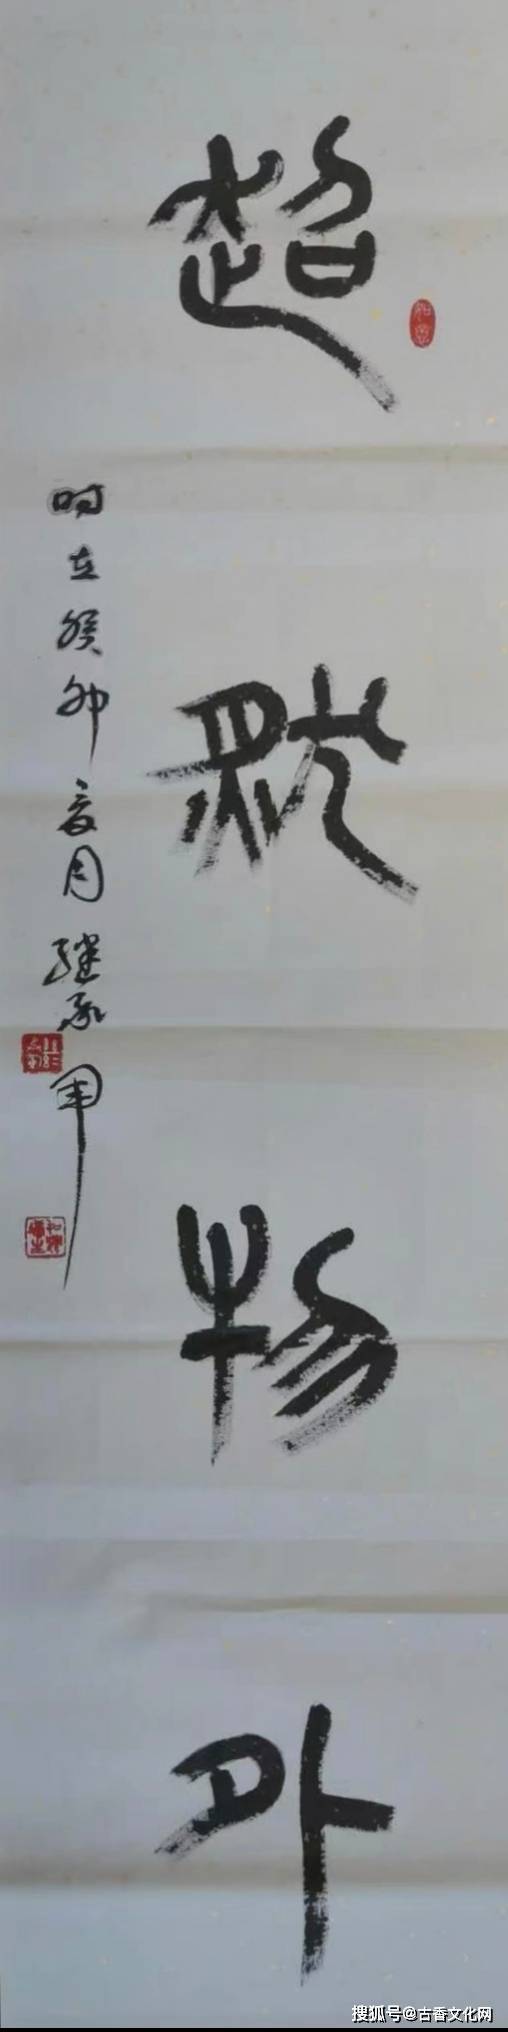 超然物外
时在癸卯夏月继
搜狐号@古香文化网